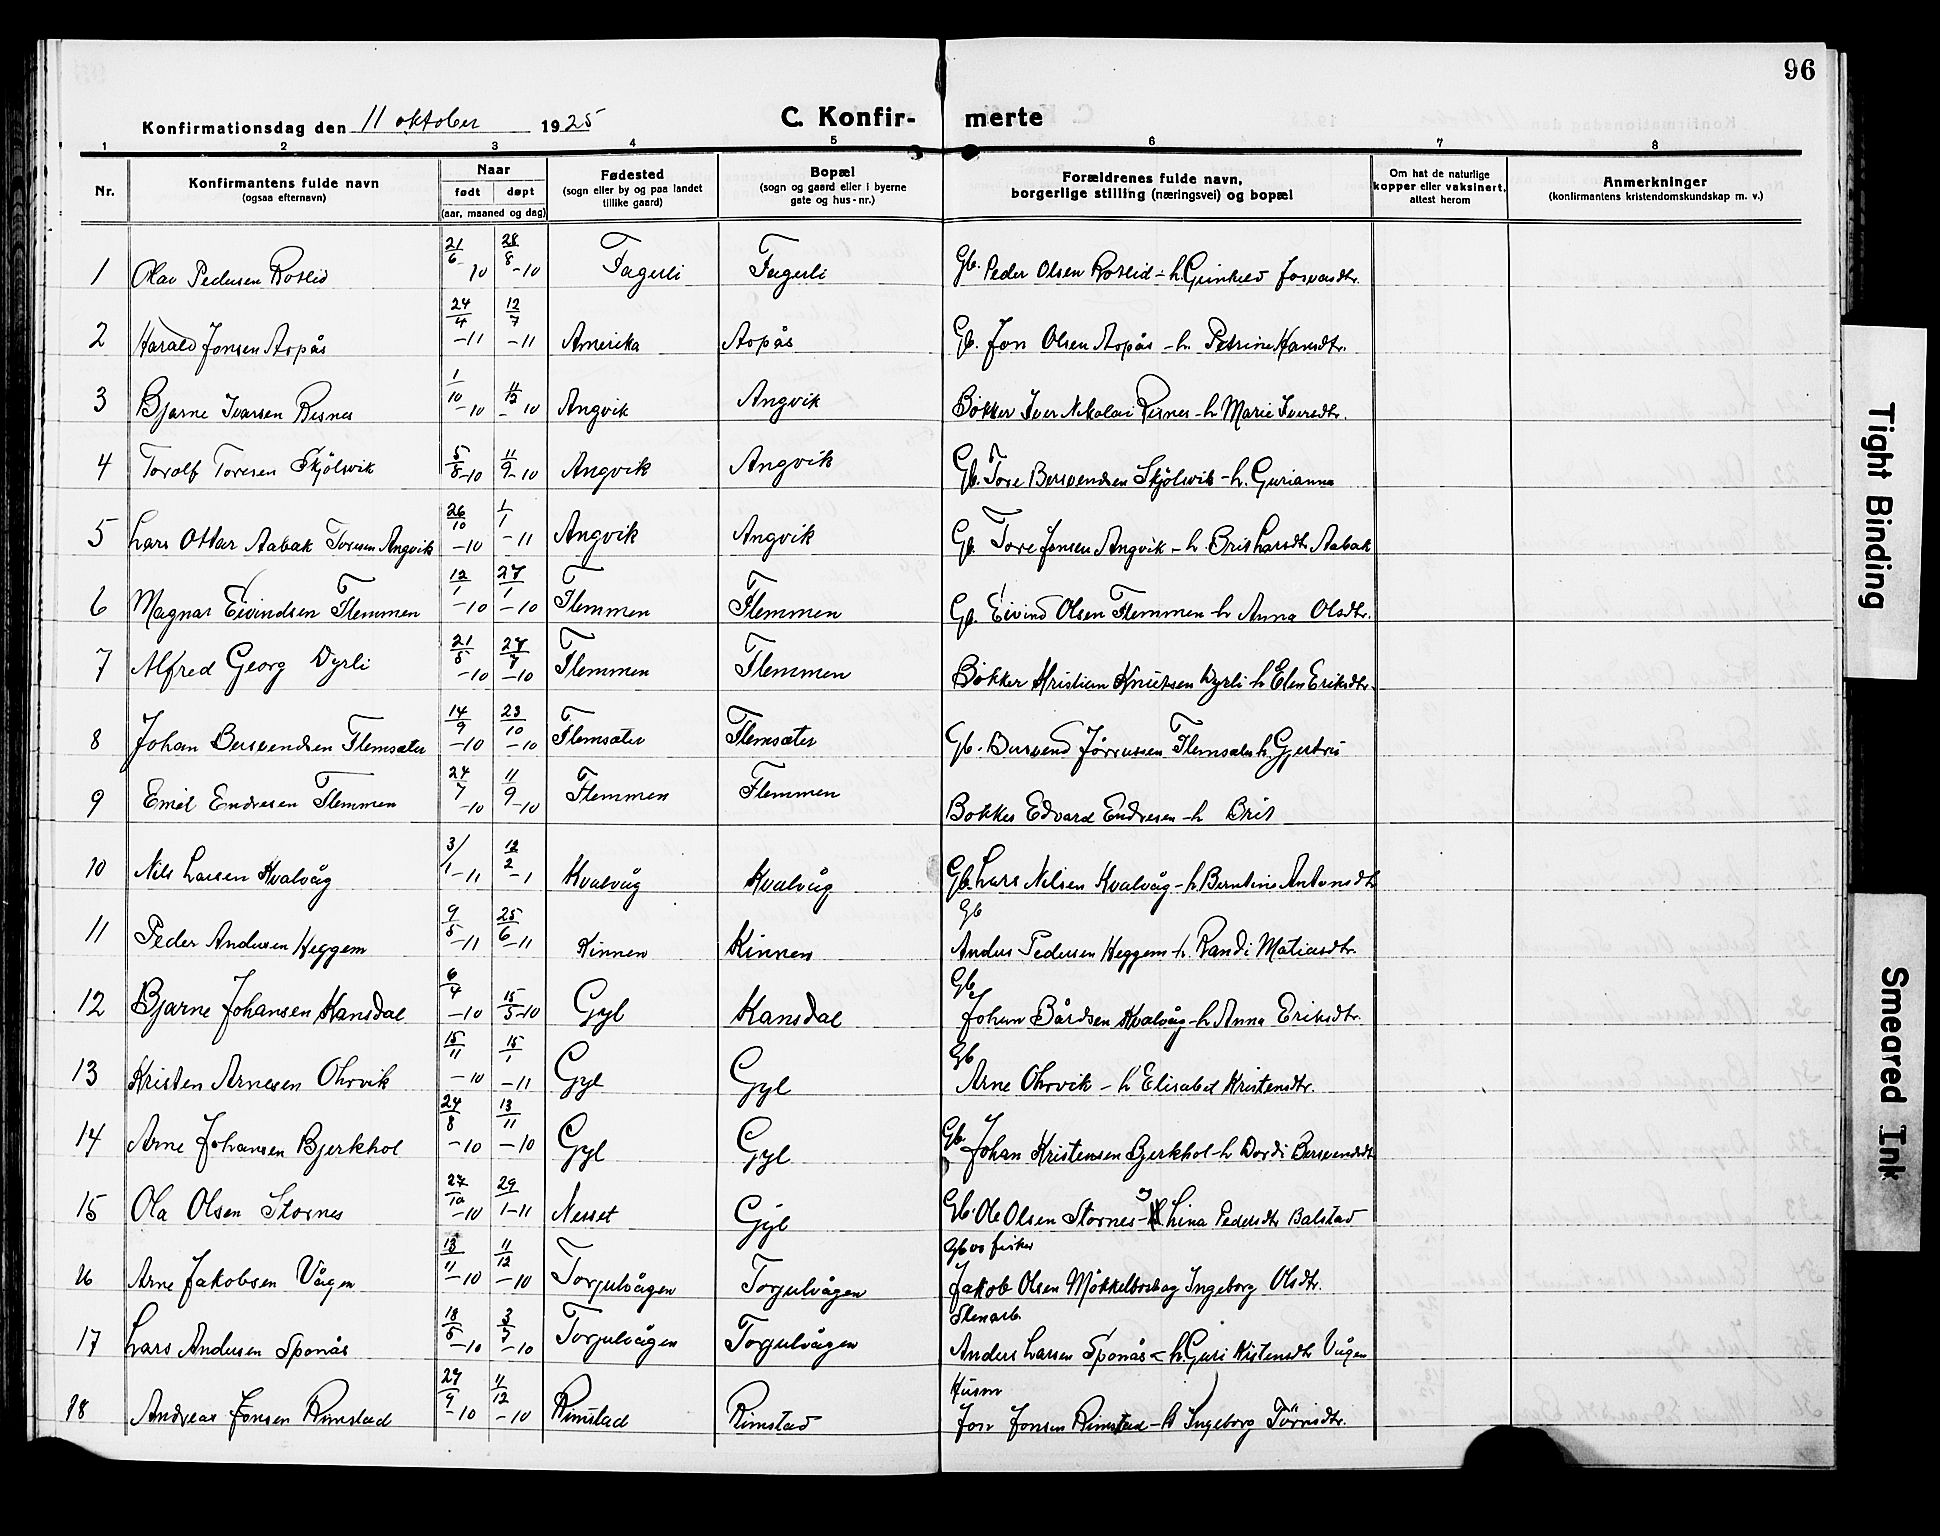 96
Konfirmationsdag den 11 oktober 1925
C. Konfir- merte
1 2 3 4 5 6 7 8
Nr. Konfirmantens fulde navn (ogsaa efternavn) Naar født døpt (aar, maaned og dag) Fødested (sogn eller by og paa landet tillike gaard) Bopæl (sogn og gaard eller i byerne gate og hus-nr.) Forældrenes fulde navn, borgerlige stilling (næringsvei) og bopæl Om hat de naturlige kopper eller vaksinert, attest herom Anmerkninger (konfirmantens kristendomskundskap m. v.)
1 Olav Pedersen Roslid 21/6-10 28/8-10 Fagerli Fagerli Gb. Peder Olsen Roslid - h.
2 Harald Jonsen Aspås 24/4-11 12/7-11 Amerika Aspås Gb. Jon Olsen Aspås - h. Petrine Hansdtr.
3 Bjarne Ivarsen Resnes 1/10-10 11/12-10 Angvik Angvik Bøkker Iver Nikolai Resnes - h Marie Iversdtr.
4 Torolf Toresen Skjölsvik 5/8-10 11/9-10 Angvik Angvik Gb. Tore Bersvendsen Skjölsvik - h. Gurianna
5 Lars Ottar Aabak Toresen Angvik 26/10-10 1/1-11 Angvik Angvik Gb. Tore Jonsen Angvik - h. Brit Larsdtr Aabak
6 Magnar Eivindsen Flemmen 12/1-10 27/1-10 Flemmen Flemmen Gb. Eivind Olsen Flemmen - h Anna Olsdtr.
7 Alfred Georg Dyrli 21/5-10 27/7-10 Flemmen Flemmen Bøkker Kristian Knutsen Dyrli - h Elen Eriksdtr.
8 Johan Bersvendsen Flemsæter 14/9-10 23/10-10 Flemsæter Flemsæter Gb. Bersvend Flemsæter h. Gjertrù
9 Emil Endresen Flemmen 24/7-10 11/9-10 Flemmen Flemmen Bøkker Edvard Endresen - h Brit
10 Nils Larsen Kvalvåg 3/1-11 12/2-1 Kvalvåg Kvalvåg Gb. Lars Nilsen Kvalvåg - h. Berntine Antonsdtr
11 Peder Andersen Heggem 9/5-11 25/6-11 Kinnen Kinnen Gb Anders Pedersen Heggem - h. Randi Matiasdtr.
12 Bjarne Johansen Kansdal 6/4-10 15/5-10 Gyl Kansdal Gb. Johan Bårdsen Kvalvåg - h Anna Eriksdtr.
13 Kristen Arnesen Ohrvik 15/11-10 15/1-11 Gyl Gyl Gb Arne Ohrvik - h Elisabet Kristensdtr.
14 Arne Johansen Bjerkhol 24/8-10 13/11-10 Gyl Gyl Gb. Johan Kristensen Bjerkhol - h Dordi Bersvendsdtr
15 Ola Olsen Stornes 27/10-10 29/1-11 Nesset Gyl Gb. Ole Olsen Stornes - og Lina Pedersdtr Balstad
16 Arne Jakobsen Vågen 13/11-10 11/12-10 Torjulvågen Torjulvågen Gb og fisker Jakob Olsen Ingeborg Olsdtr.
17 Lars Andersen Sponås 18/5-10 3/7-10 Torjulvågen Torjulvågen Stenarb. Anders Larsen Sponås - h. Guri Kristensdtr Vågen
18 Andreas Jonsen Rimstad 27/9-10 11/12-10 Rimstad Rimstad Husm Jon Jonsen Rimstad - h Ingeborg Törrisdtr.
Tight Binding
Smeared Ink